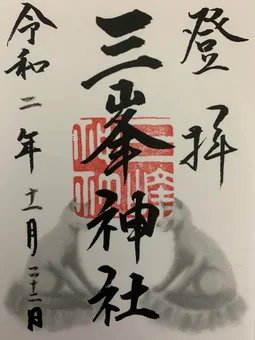 登拝
三峯神社
令和二年十一月二十二日